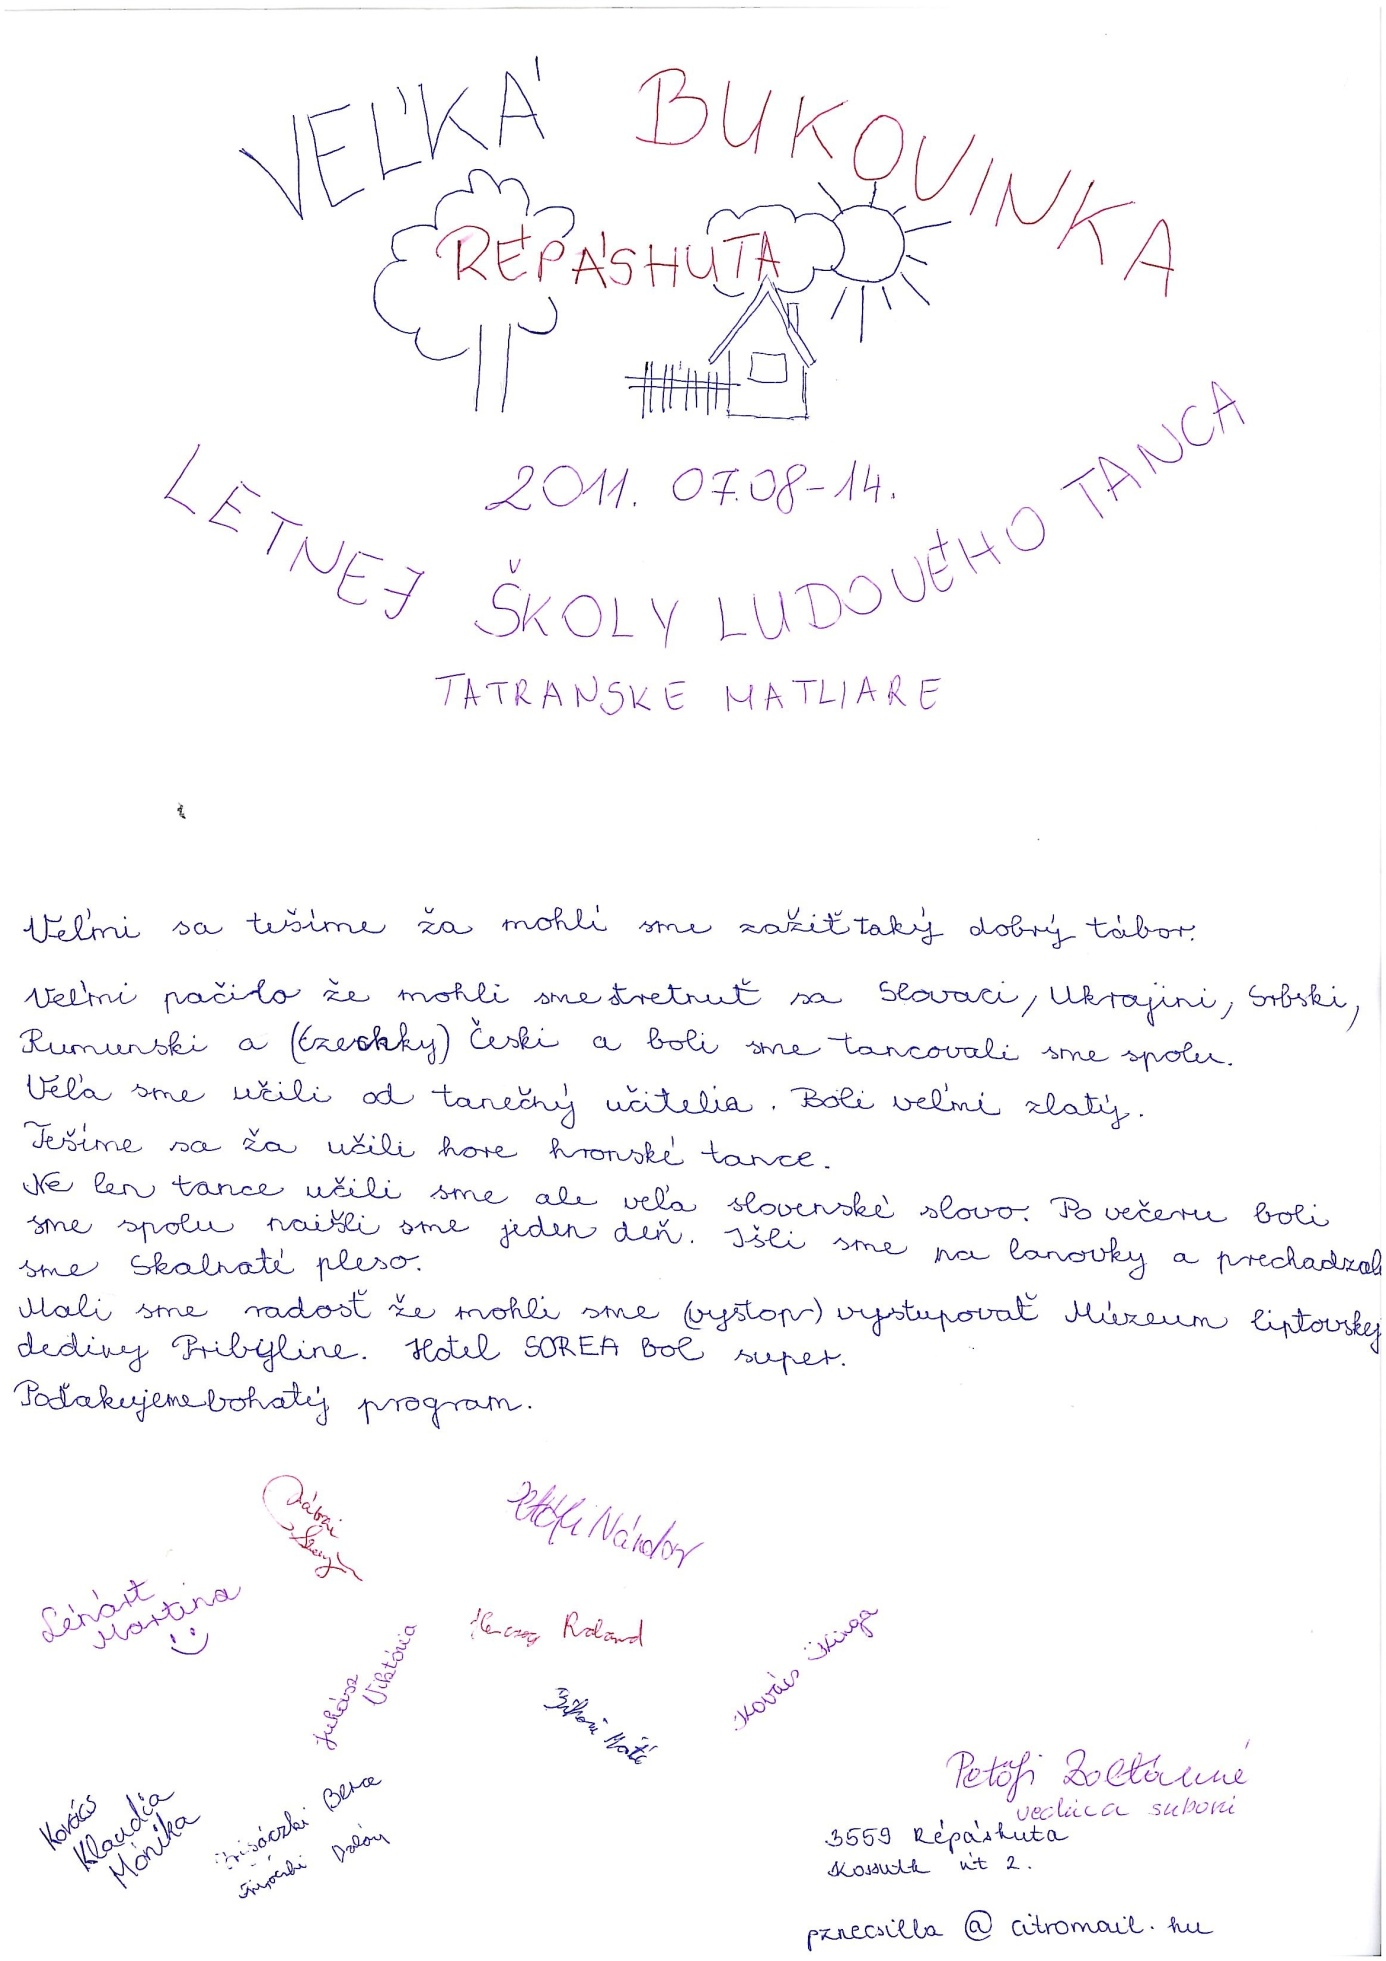 VEĽKÁ BUKOVINKA
RÉPÁSHUTA
2011. 07.08-14.
LETNEJ ŠKOLY LUDOVÉHO TANCA
TATRANSKE MATLIARE
Veľmi sa tešíme ža mohli sme zažiť taký dobrý tábor.
Veľmi pačilo že mohli sme stretnuť sa Slovaci, Ukrajini, Srbski,
Rumunski a (Czechky) Česki a boli sme tancovali sme spolu.
Veľa sme učili od tanečný učitelia. Boli veľmi zlatý.
Tešíme sa ža učili hore hronské tance.
Ne len tance učili sme ale veľa slovenské slovo. Po večeru boli
sme spolu naišli sme jeden deň. Išli sme na lanovky a prechadzali
sme Skalnaté pleso.
Mali sme radosť že mohli sme (vystop) vystupovať Múzeum liptovskej
dediny Pribyline. Hotel SOREA bol super.
Poďakujeme bohatý program.
Petőfi Nándor
Lénárt
Martina
Herczeg Roland
Juhász
Viktória
Kovács Kinga
Máté
Kovács
Klaudia
Mónika
Bence
Petőfi Zoltánné
vedúca suboni
3559 Répáshuta
Kossuth út 2.
pznecsilla @ citromail.hu